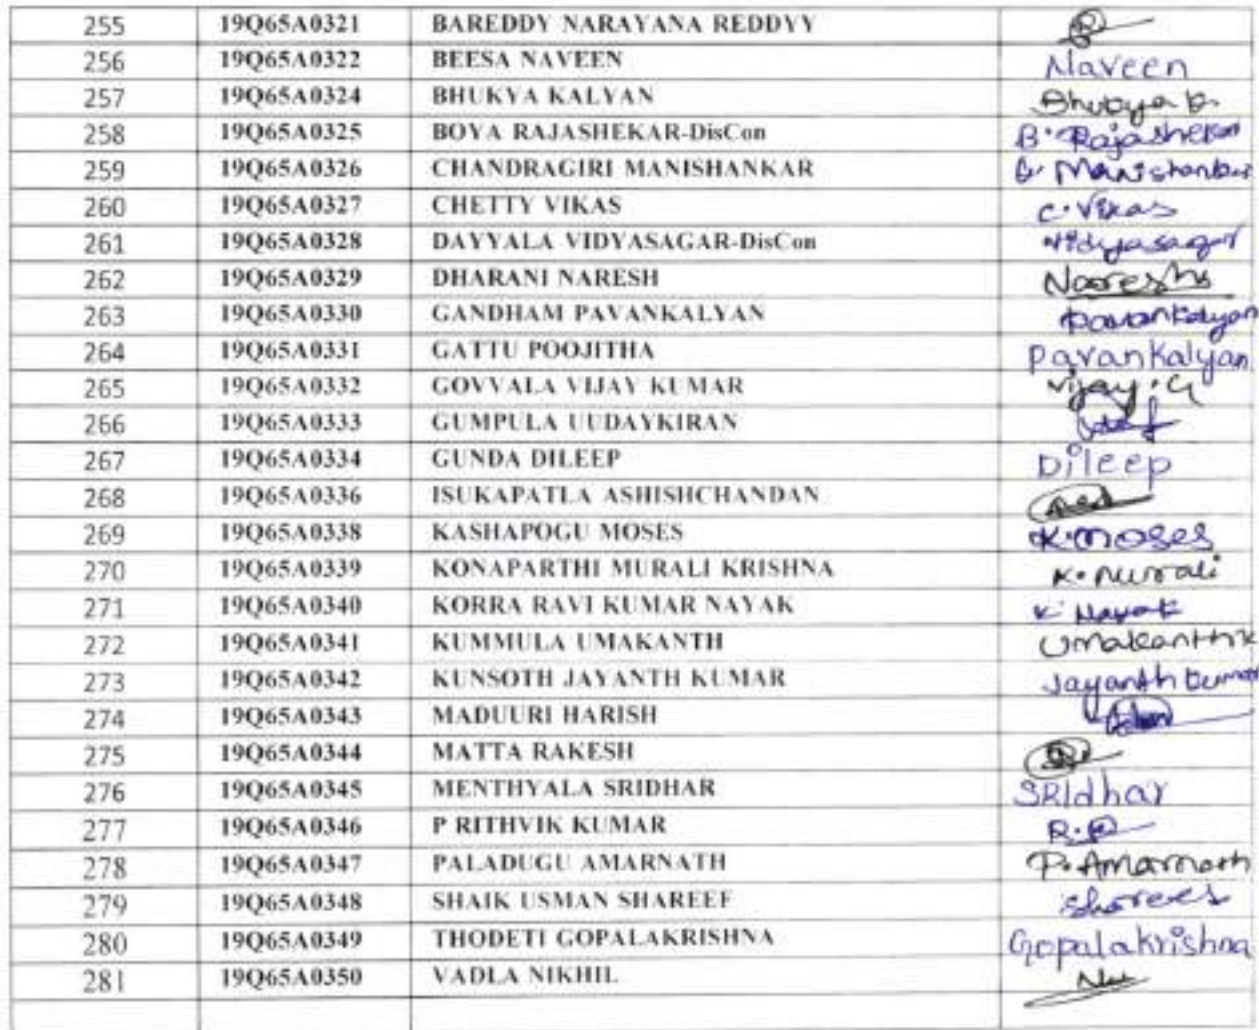 255 19Q65A0321 BAREDDY NARAYANA REDDYY
256 19Q65A0322 BEESA NAVEEN Naveen
257 19Q65A0324 BHUKYA KALYAN Bhukya k.
258 19Q65A0325 BOYA RAJASHEKAR-DisCon B. Rajashekar
259 19Q65A0326 CHANDRAGIRI MANISHANKAR Manishankar
260 19Q65A0327 CHETTY VIKAS C. Vikas
261 19Q65A0328 DAYYALA VIDYASAGAR-DisCon Vidyasagar
262 19Q65A0329 DHARANI NARESH
263 19Q65A0330 GANDHAM PAVANKALYAN Pavankalyan
264 19Q65A0331 GATTU POOJITHA Pavankalyan
265 19Q65A0332 GOVVALA VIJAY KUMAR Vijay.G
266 19Q65A0333 GUMPULA UUDAYKIRAN
267 19Q65A0334 GUNDA DILEEP Dileep
268 19Q65A0336 ISUKAPATLA ASHISHCHANDAN
269 19Q65A0338 KASHAPOGU MOSES K.moses
270 19Q65A0339 KONAPARTHI MURALI KRISHNA K. Murali
271 19Q65A0340 KORRA RAVI KUMAR NAYAK K Nayak
272 19Q65A0341 KUMMULA UMAKANTH Umakanth k
273 19Q65A0342 KUNSOTH JAYANTH KUMAR Jayanth kumar
274 19Q65A0343 MADUURI HARISH
275 19Q65A0344 MATTA RAKESH
276 19Q65A0345 MENTHYALA SRIDHAR SRIdhar
277 19Q65A0346 P RITHVIK KUMAR
278 19Q65A0347 PALADUGU AMARNATH P. Amarnath
279 19Q65A0348 SHAIK USMAN SHAREEF
280 19Q65A0349 THODETI GOPALAKRISHNA Gopalakrishna
281 19Q65A0350 VADLA NIKHIL